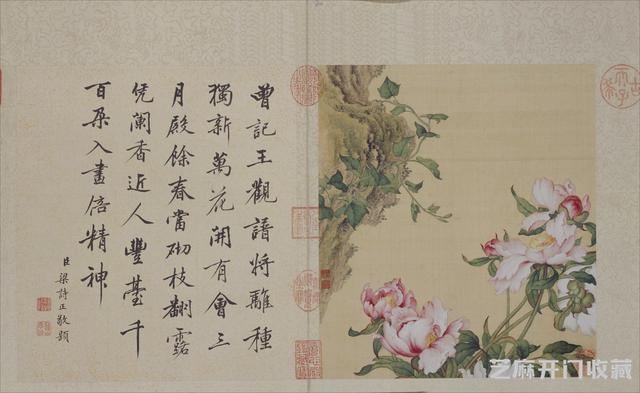 曾記王觀譜將離種
獨新萬花開有會三
月殿餘春當砌枝翻露
凭闌香近人豐臺千
百朶入畫倍精神
臣梁詩正敬題
古希天子
芝麻开门收藏